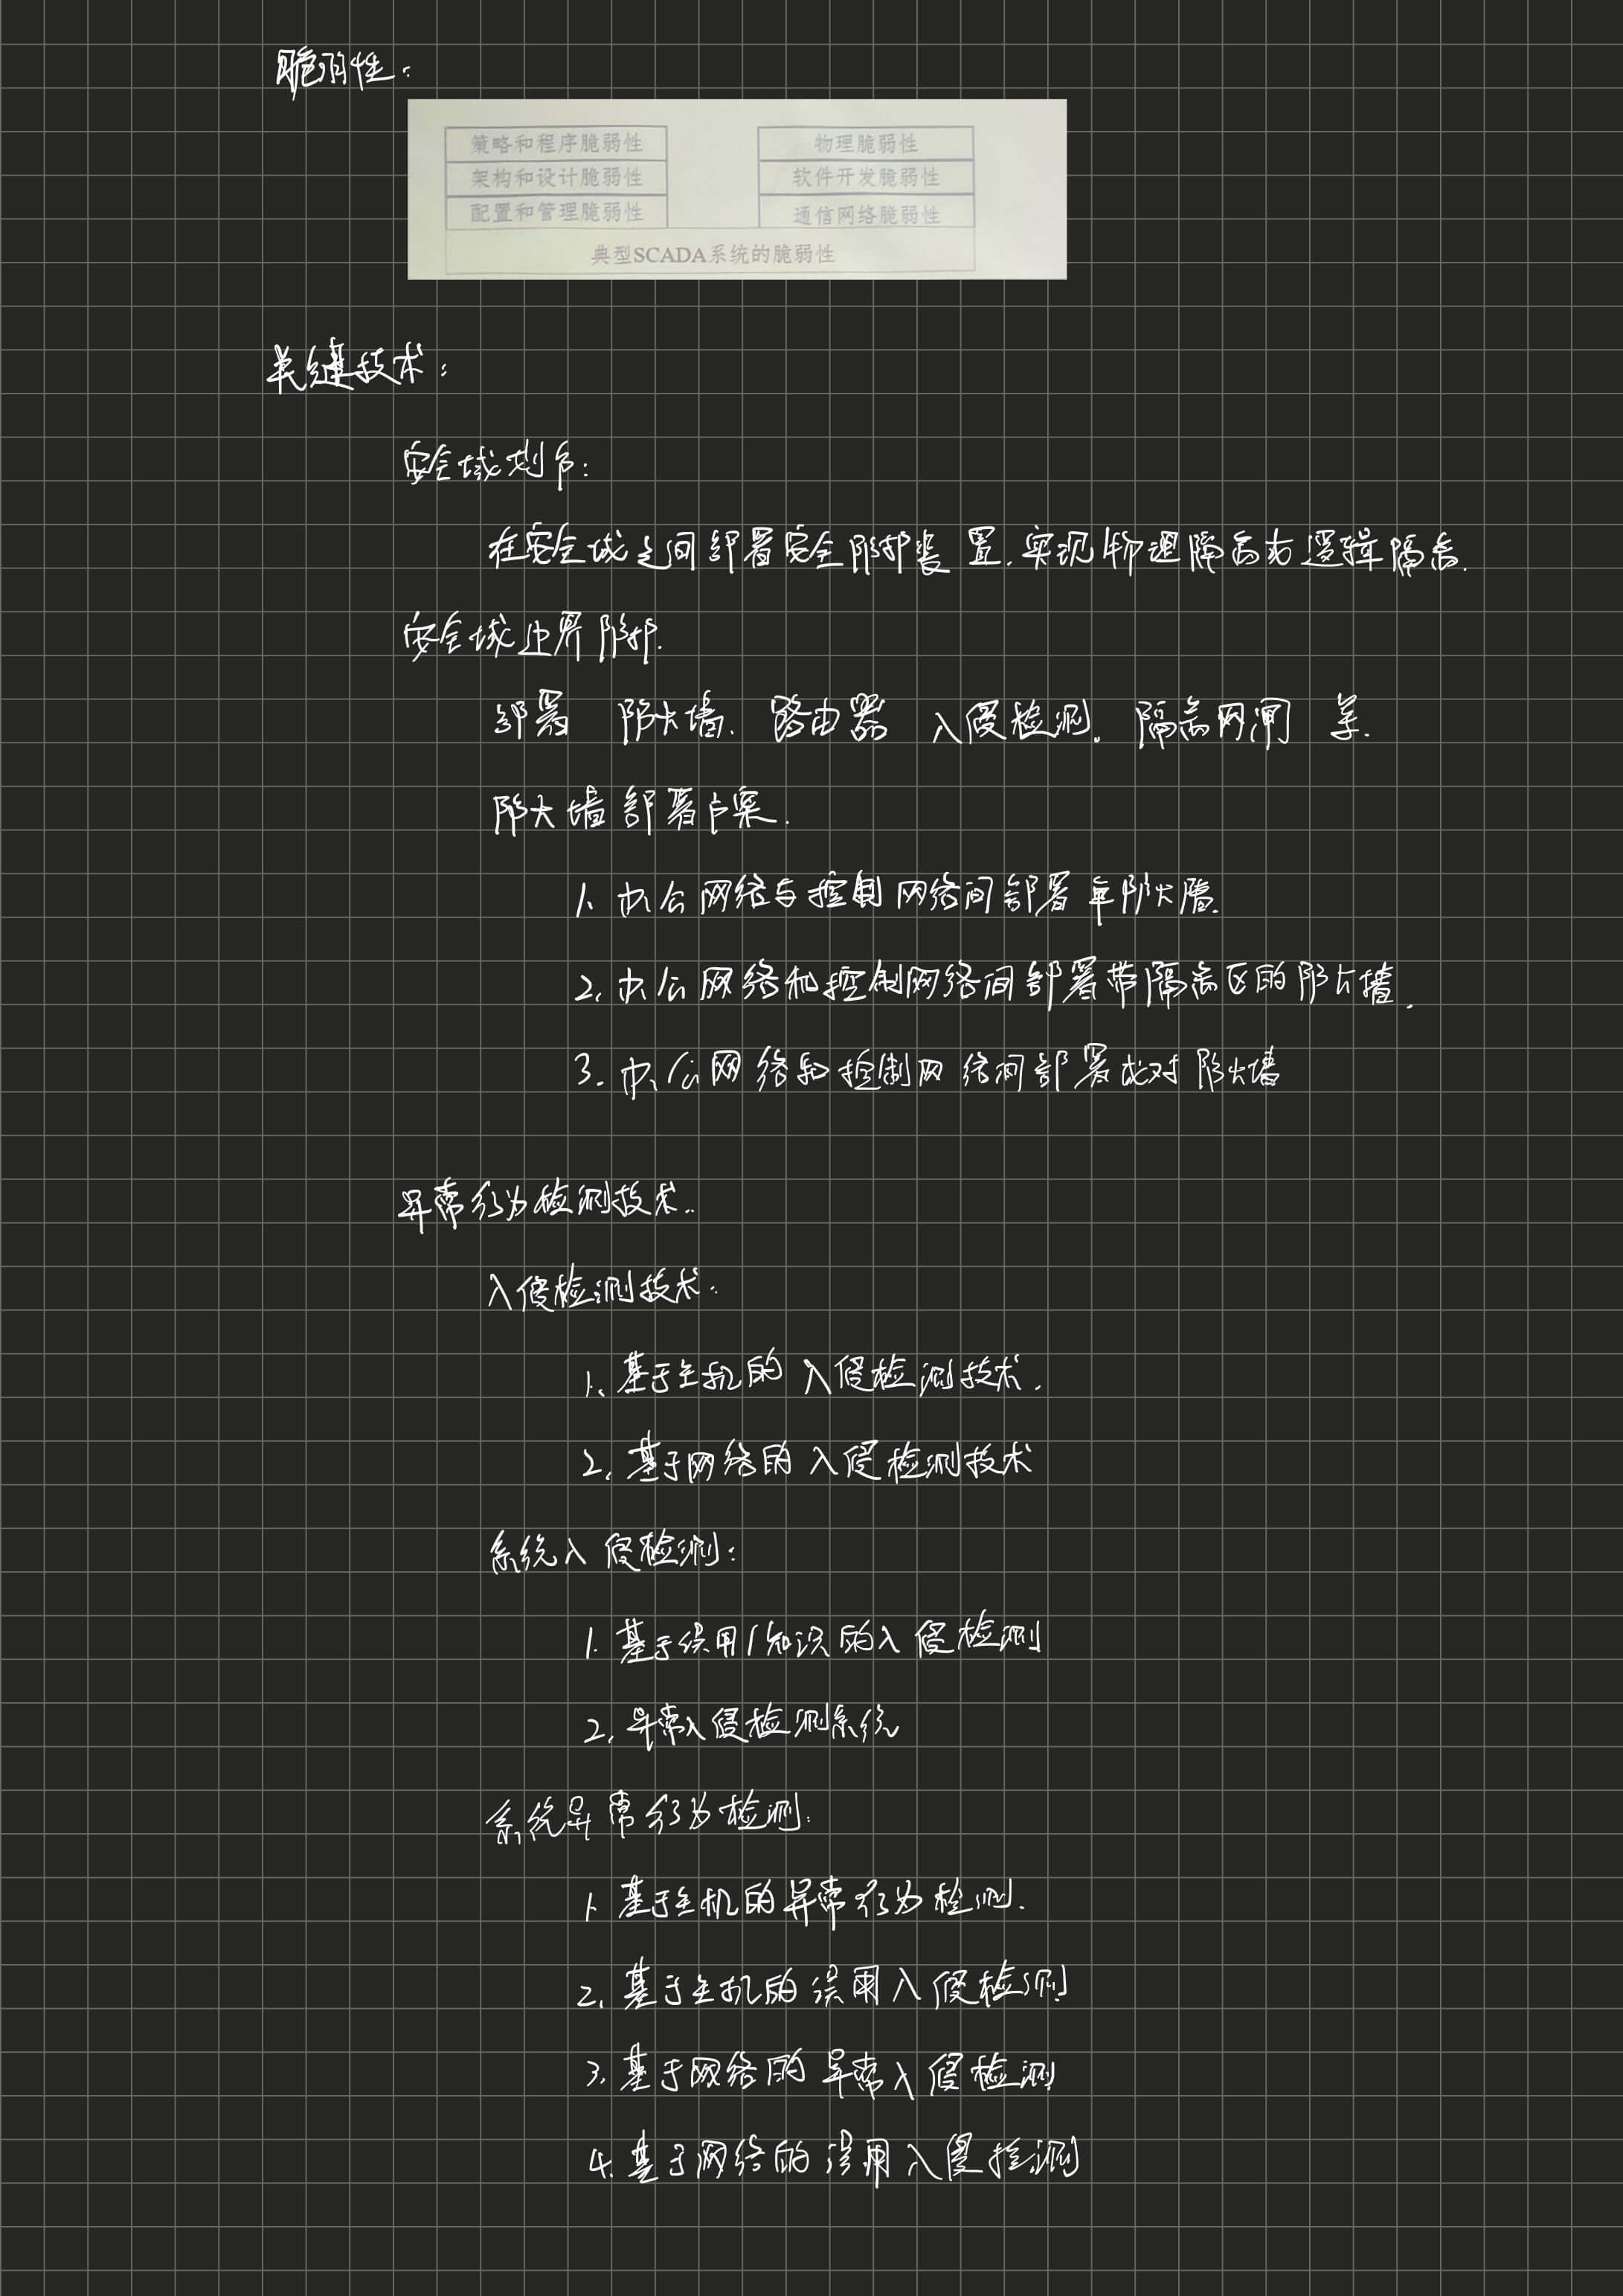 脆弱性：
策略和程序脆弱性 物理脆弱性
架构和设计脆弱性 软件开发脆弱性
配置和管理脆弱性 通信网络脆弱性
典型SCADA系统的脆弱性
关键技术：
安全域划分：
在安全域之间部署安全防护装置.实现物理隔离或逻辑隔离.
安全域边界防护.
部署 防火墙、路由器 入侵检测、隔离网闸 等.
防火墙部署方案.
1、办公网络与控制网络间部署单防火墙.
2、办公网络和控制网络间部署带隔离区的防火墙.
3.办公网络和控制网络间部署成对防火墙
异常行为检测技术..
入侵检测技术：
1、基于主机的入侵检测技术.
2、基于网络的入侵检测技术
系统入侵检测：
1.基于误用/知识的入侵检测
2、异常入侵检测系统
系统异常行为检测：
1.基于主机的异常行为检测.
2、基于主机的误用入侵检测
3、基于网络的异常入侵检测
4.基于网络的误用入侵检测